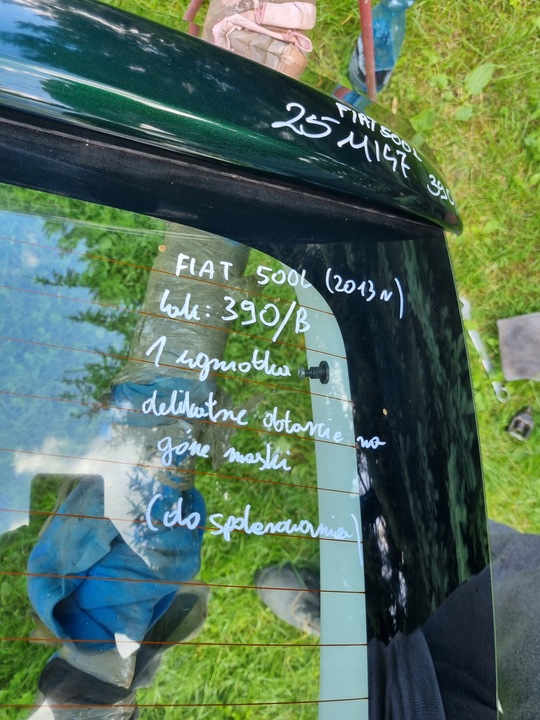 FIAT 500L
25 M1G7 390
FIAT 500L (2013 N)
lak: 390/B
1 wgniotka
delikatne obtarcie na
górze maski
(do spolerowania)